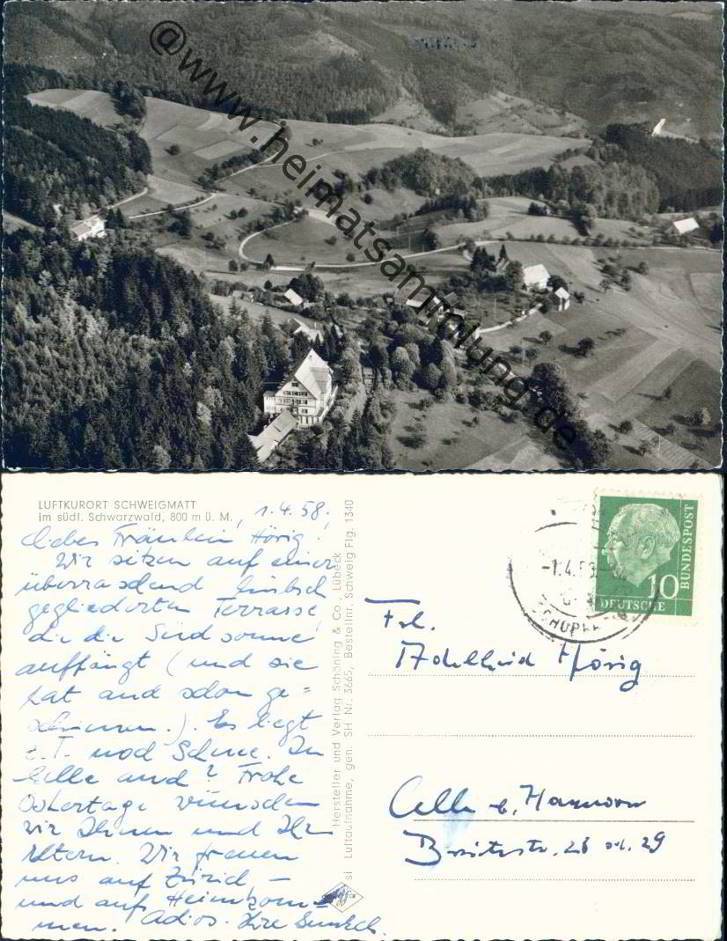 @www.heimatsammlung.de
LUFTKURORT SCHWEIGMATT
im südl. Schwarzwald, 800 m ü. M.
1.4.58,
Liebes Fräulein Hörig!
Wir sitzen auf einer
überraschend hübsch
gegliederten Terrasse,
die die Südsonne
auffängt (und sie
hat auch schon ge=
schienen.). Es liegt
z.T. noch Schnee. In
Celle auch? Frohe
Ostertage wünschen
wir Ihnen und Ihren
Eltern. Wir freuen
uns auf Zürich –
und aufs Heimkom=
men. Adios. Ihre
Hersteller und Verlag Schöning & Co., Lübeck
si Luftaufnahme, gen. SH Nr. 3665, Bestellnr. Schweig Flg. 1340
-1.4.58
SCHOPF
10
DEUTSCHE
BUNDESPOST
Frl.
Adelheid Hörig
Celle b. Hannover
Breitestr. 28 od. 29